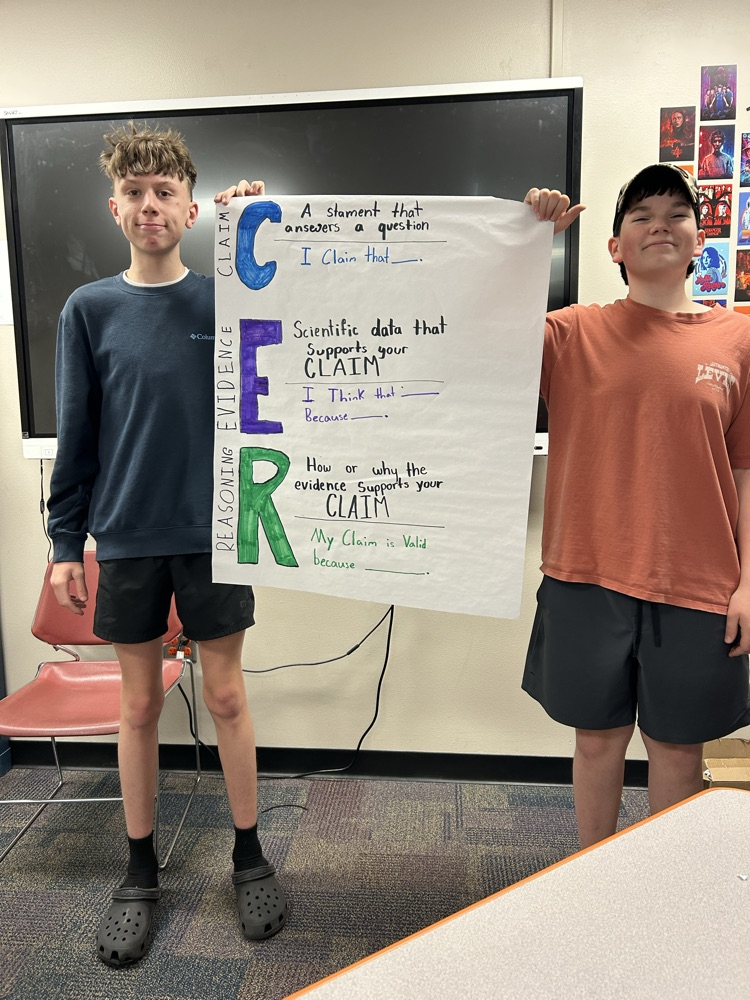 SMART
CLAIM
C
A stament that
answers a question
I Claim that ___.
EVIDENCE
E
Scientific data that
Supports your
CLAIM
I Think that ___
Because ___.
REASONING
R
How or why the
evidence supports your
CLAIM
My Claim is Valid
because ___.
Colum
LEVI